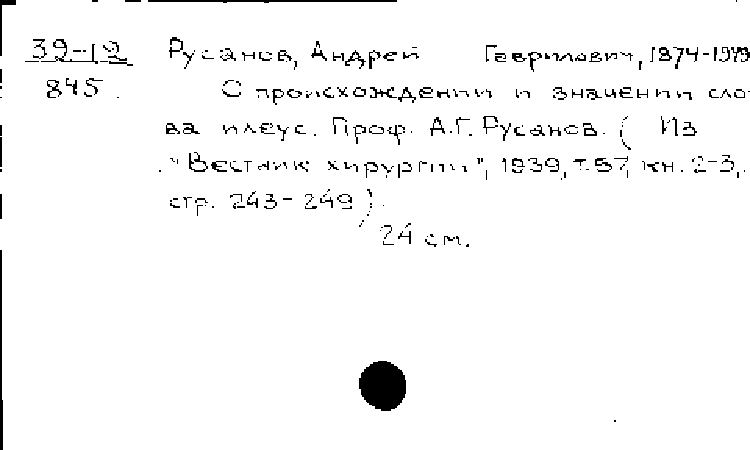 39-12 Русанов, Андрей Гаврилович, 1874-1949
845. О происхождении и значении сло-
ва илеус. Проф. А.Г. Русанов. (Из
"Вестник хирургии", 1939, т.57, кн. 2-3,
стр. 243-249).
24 см.